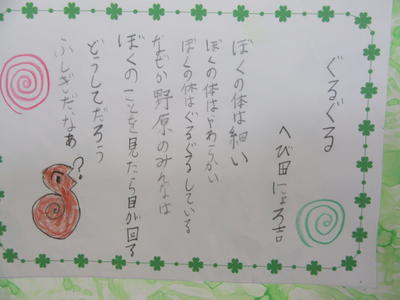 ぐるぐる
へび田にょろ吉
ぼくの体は細い
ぼくの体はやわらかい
ぼくの体はぐるぐるしている
なぜか野原のみんなは
ぼくのことを見たら目が回る
どうしてだろう
ふしぎだなぁ
?